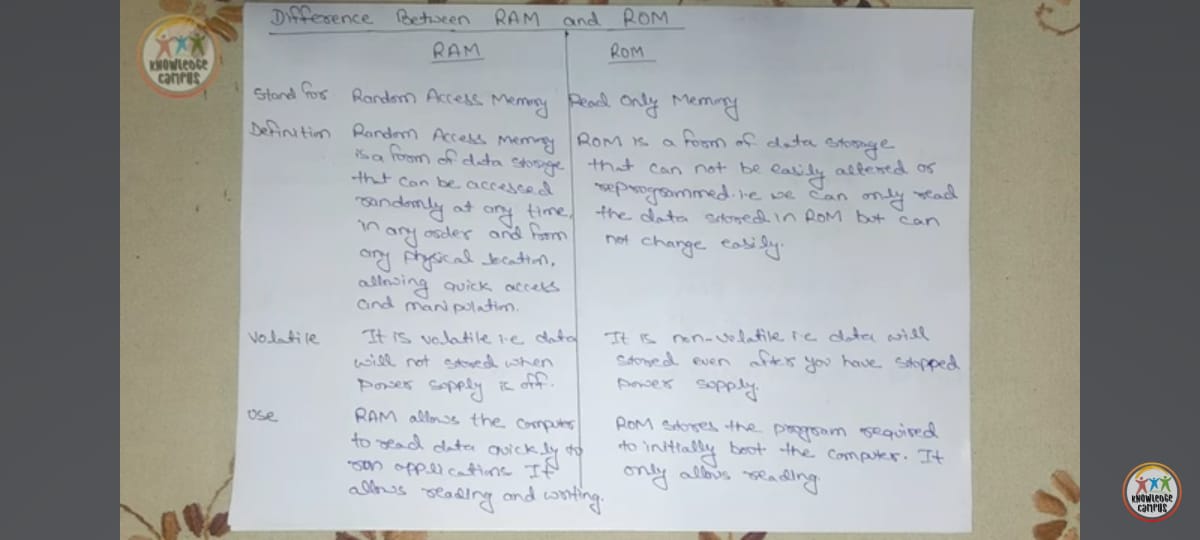 Difference Between RAM and ROM
RAM
ROM
KNOWLEDGE
CAMPUS
Stand for Random Access Memory Read Only Memory
Definition Random Access Memory
is a form of data storage
that can be accessed
randomly at any time,
in any order and form
any physical location,
allowing quick access
and manipulation.
ROM is a form of data storage
that can not be easily altered or
reprogrammed. i.e we can only read
the data stored in ROM but can
not change easily.
Volatile It is volatile i.e data
will not stored when
power supply is off.
It is non-volatile i.e data will
stored even after you have stopped
power supply.
Use RAM allows the computer
to read data quickly to
run applications It
allows reading and writing.
ROM stores the program required
to initially boot the computer. It
only allows reading.
KNOWLEDGE
CAMPUS